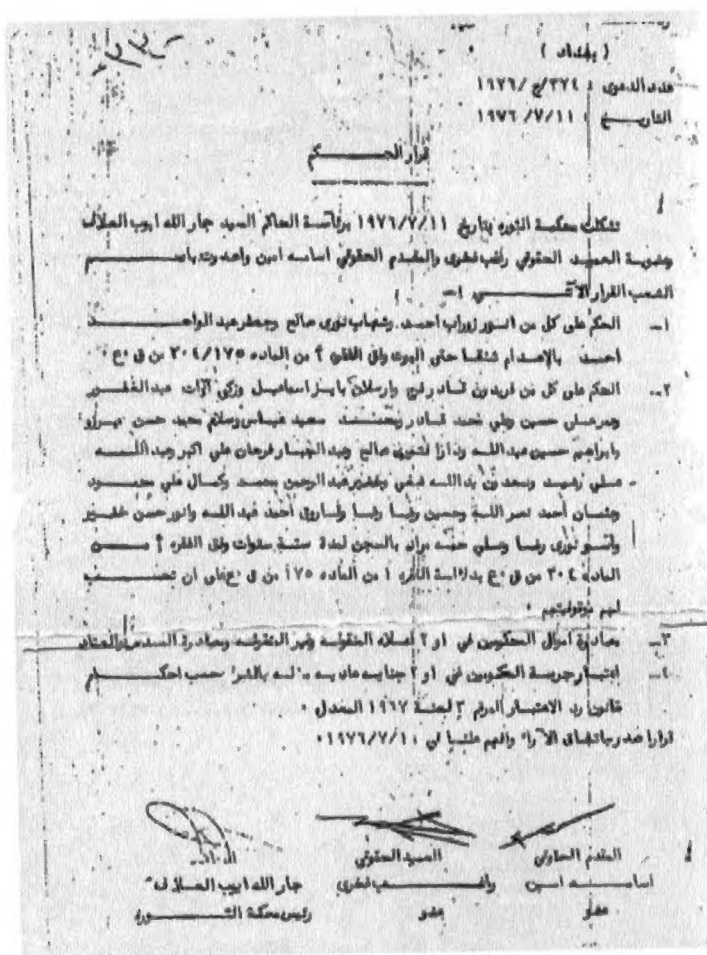 ( بغداد )
عدد الدعوى : ٣٧٤/ج/١٩٧٦
التاريـــخ : ١٩٧٦/٧/١١
قرار الحـــــكم
تشكلت محكمة الثورة بتاريخ ١٩٧٦/٧/١١ برئاسة الحاكم السيد جار الله ايوب العلاف
وعضوية العميد الحقوقي راغب فخري والمقدم الحقوقي اسامه امين واصدرت باســـم
الشعب القرار الاتـــي :-
١- الحكم على كل من انور زوراب احمد وشهاب نوري صالح وجعفر عبد الواحـــد
احمد بالاعدام شنقا حتى الموت وفق الفقره أ من الماده ٣٠٤/١٧٥ من ق ع
٢- الحكم على كل من فريدون قادر فرج وارسلان بايز اسماعيل وزكي عبد الغفـور
وعمر علي حسين وعلي محمد قادر سعيد عباس وسلام محمد حسن ميرزا
وابراهيم حسين عبد الله شوري صالح وعبد الجبار فرحان علي اكبر وعبد اللـــه
علي وسعدون عبد الله فيضي وخضير عبد الرحمن محمد وكمال علي محمـــود
وعثمان أحمد نصر الله وحسين رضا رضا وفاروق أحمد عبد اللـه وانور حسن خضير
وانور نوري رضا وعلي حمه مراد بالسجن لمدة ستـة سنوات وفق الفقره أ مــــن
الماده ٣٠٤ من ق ع بدلالة الفقره أ من الماده ١٧٥ من ق ع على ان تحســـب
لهم موقوفيتهم .
٣- مصادرة اموال المحكومين في ١ و ٢ اعلاه المنقوله وغير المنقوله ومصادرة المسدس والعتاد
٤- اعتبار جريمة المحكومين في ١ و ٢ جنايه عاديه مخله بالشرف حسب احكـــــام
قانون رد الاعتبار المرقم ٣ لسنـة ١٩٦٧ المعدل .
قرارا صدر باتفاق الآراء وافهم علنـا في ١٩٧٦/٧/١٠
المقدم الحقوقي
اسامـــــه امين
عضو
العميد الحقوقي
راغــــــب فخري
عضو
جار الله ايوب العــلاف
رئيس محكمة الثـــــورة